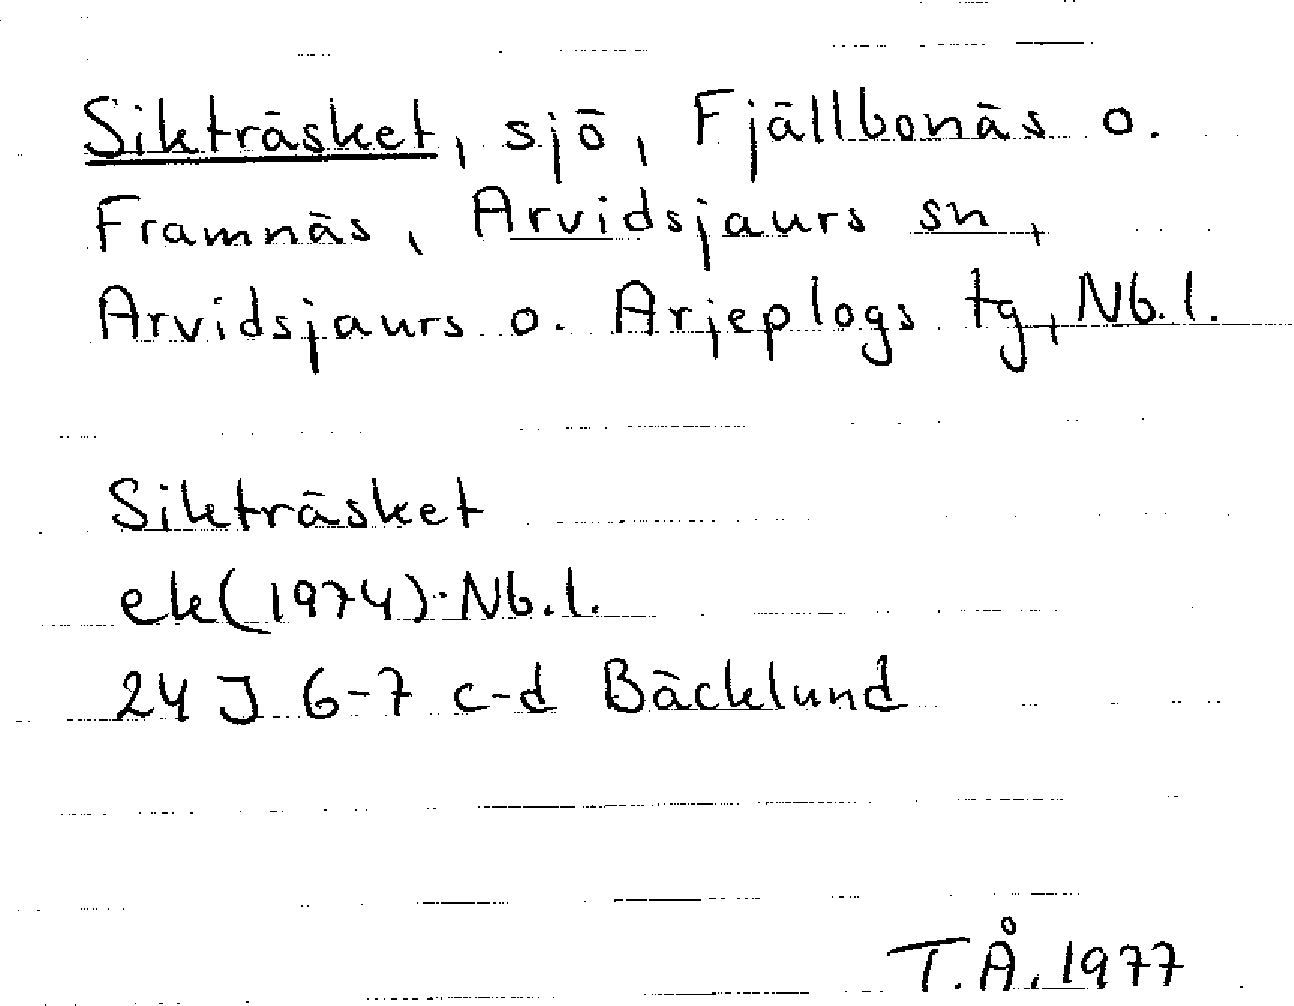 Sikträsket, sjö, Fjällbonäs o.
Framnäs, Arvidsjaurs sn,
Arvidsjaurs o. Arjeplogs tg, Nb.l.
Sikträsket
ek(1974) Nb.l.
24 J 6-7 c-d Bäcklund
T.Å. 1977